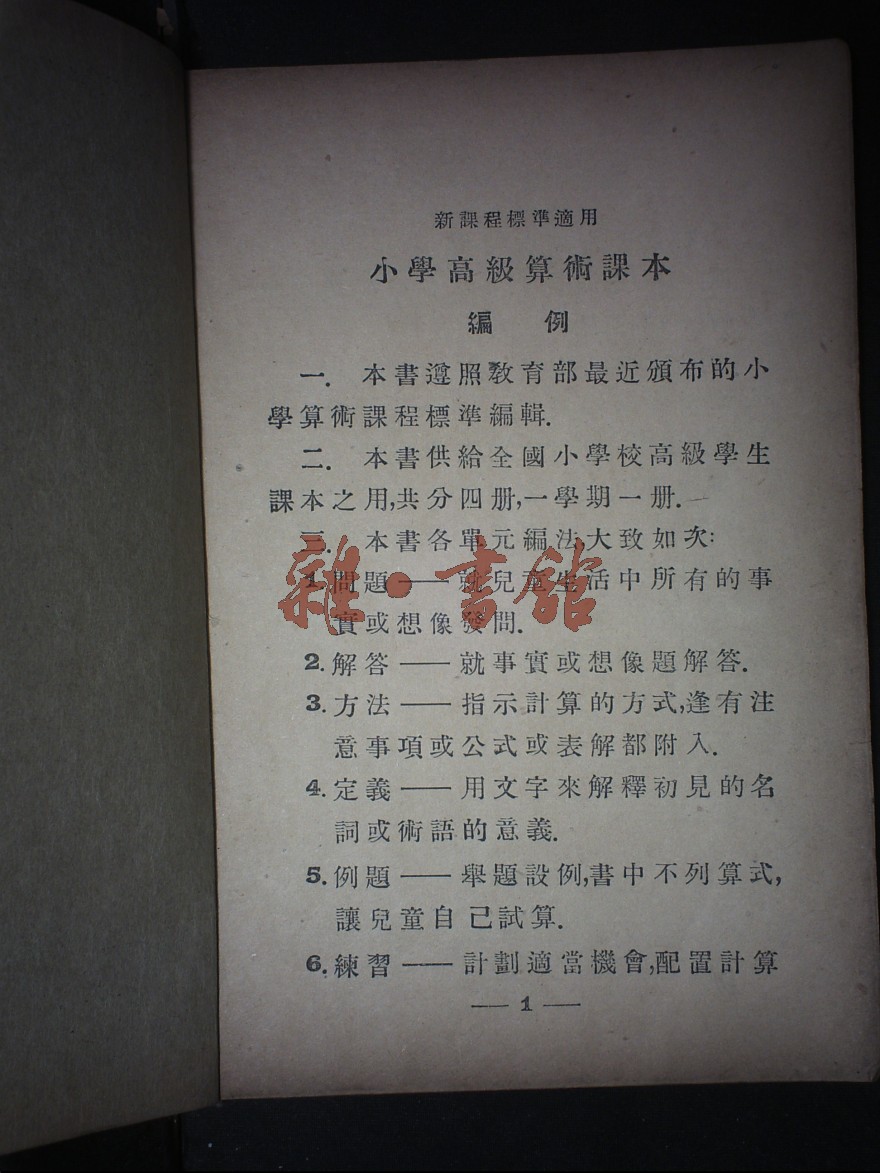 新課程標準適用
小學高級算術課本
編例
一. 本書遵照教育部最近頒布的小
學算術課程標準編輯.
二. 本書供給全國小學校高級學生
課本之用,共分四册,一學期一册.
三. 本書各單元編法大致如次:
1. 問題——就兒童生活中所有的事
實或想像發問.
2. 解答——就事實或想像題解答.
3. 方法——指示計算的方式,逢有注
意事項或公式或表解都附入.
4. 定義——用文字來解釋初見的名
詞或術語的意義.
5. 例題——舉題設例,書中不列算式,
讓兒童自己試算.
6. 練習——計劃適當機會,配置計算
— 1 —
雜·書館